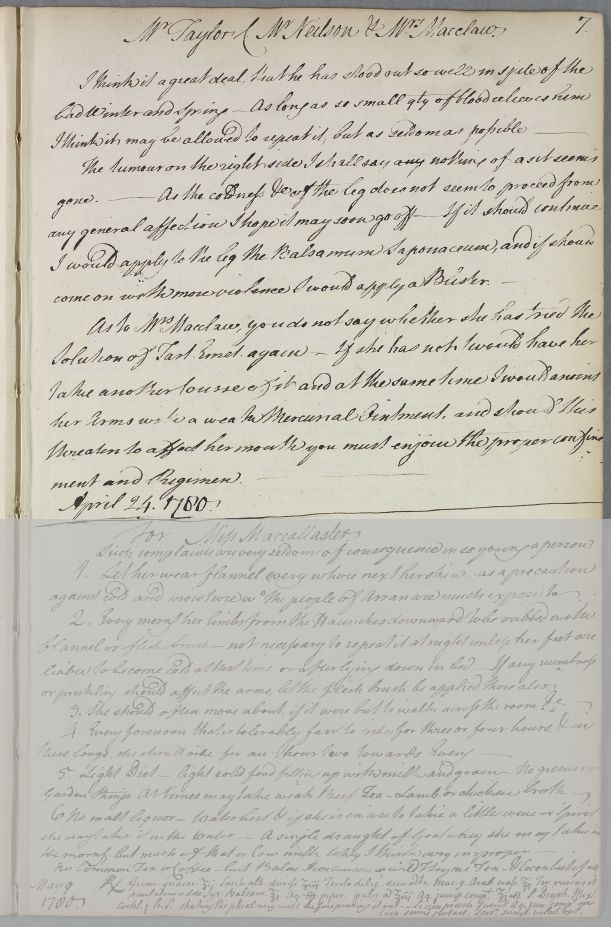 Mr Taylor (Mr Neilson & Mrs Macclaw) 7.
I think it a great deal, that he has stood out so well in spite of the
bad Winter and Spring — As long as so small qty of blood relieves him
I think it may be allowed to repeat it, but as seldom as possible —
The tumour on the right side I shall say nothing of as it seems
gone. — As the coldness &c of the Leg does not seem to proceed from
any general affection I hope it may soon go off — If it should continue
I would apply to the leg the Balsamum Saponaceum, and if should
come on with more violence I would apply a Blister. —
As to Mrs Macclaw, you do not say whether she has tried the
Solution of Tart. Emet. again — If she has not I would have her
take another Course of it and at the same time I would anoint
her Arms with a weak Mercurial Ointment, and should this
threaten to affect her mouth you must enjoin the proper confine
ment and Regimen.
April 24. 1780.
For Miss Maccallaster
Such complaints are very seldom of consequence in so young a person
1. Let her wear flannel every where next her skin as a precaution
against cold and moisture wc the people of Arran are much exposed to
2. Every morng her limbs from the Haunches downward to be rubbed with
flannel or flesh brush — not necessary to repeat it at night unless her feet are
liable to become cold at that time or after lying down in bed — If any numbness
or prickling should affect the arms, let the flesh brush be applied there also
3. She should often move about, if it were but to walk across the room &c
4. Every forenoon that is tolerably fair to ride for three or four hours, & in
these long days, she should ride for an hour two towards Eveng
5. Light Diet — light solid food filling up with milk and grain — No greens or
Garden things. At times may take weak Beef Tea — Lamb or chicken broth
6 No malt liquor — Water best & if she is in use to take a little wine or Spirit
she may take it in the Water — A single draught of Goat whey she may take in
the morng but much of that or Cow milk Why I think very improper
No Common Tea or Coffee — but Balm, Rosemary or wild Thyme Tea
May 9
1780